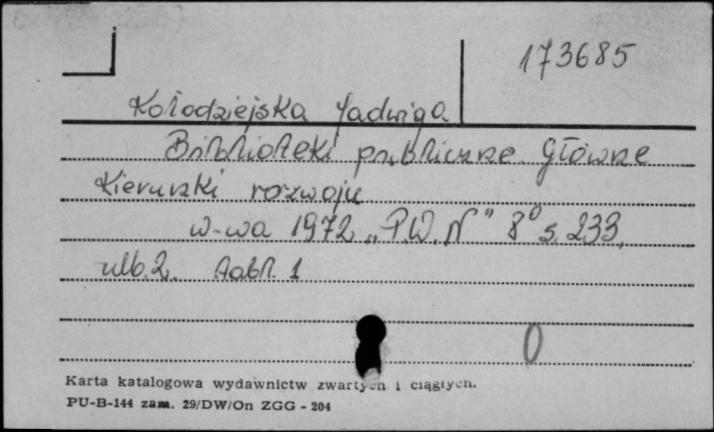 173685
Kołodziejska Jadwiga
Biblioteki publiczne. Główne
kierunki rozwoju
W-wa 1972 „P.W.N" 8° s. 233,
nlb. 2. tabl. 1
0
Karta katalogowa wydawnictw zwartych i ciągłych.
PU-B-144 zam. 29/DW/On ZGG - 204